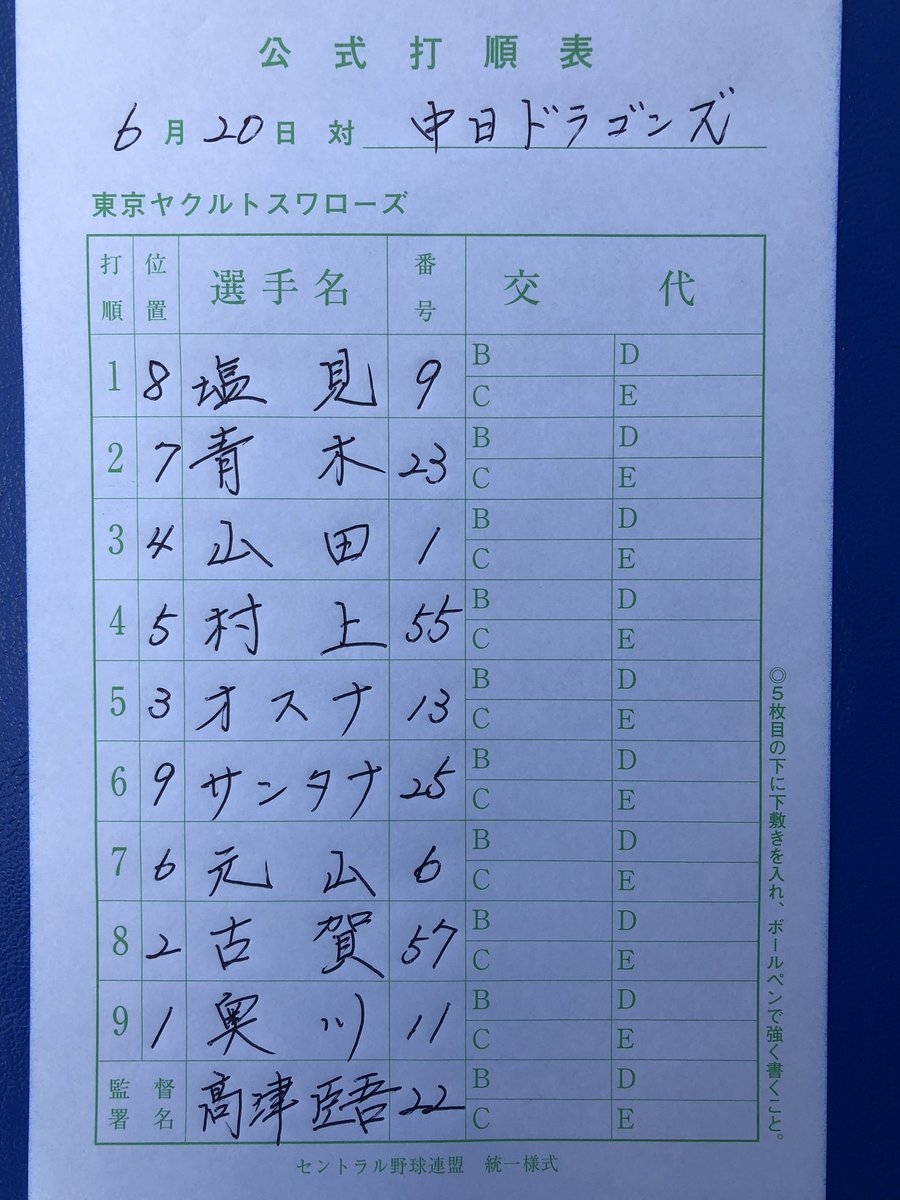 公式打順表
6月20日 対 中日ドラゴンズ
東京ヤクルトスワローズ
打順 位置 選手名 番号 交代
1 8 塩見 9 B D
C E
2 7 青木 23 B D
C E
3 4 山田 1 B D
C E
4 5 村上 55 B D
C E
5 3 オスナ 13 B D
C E
6 9 サンタナ 25 B D
C E
7 6 元山 6 B D
C E
8 2 古賀 57 B D
C E
9 1 奥川 11 B D
C E
監督署名 高津臣吾 22 B D
C E
◎5枚目の下に下敷きを入れ、ボールペンで強く書くこと。
セントラル野球連盟 統一様式